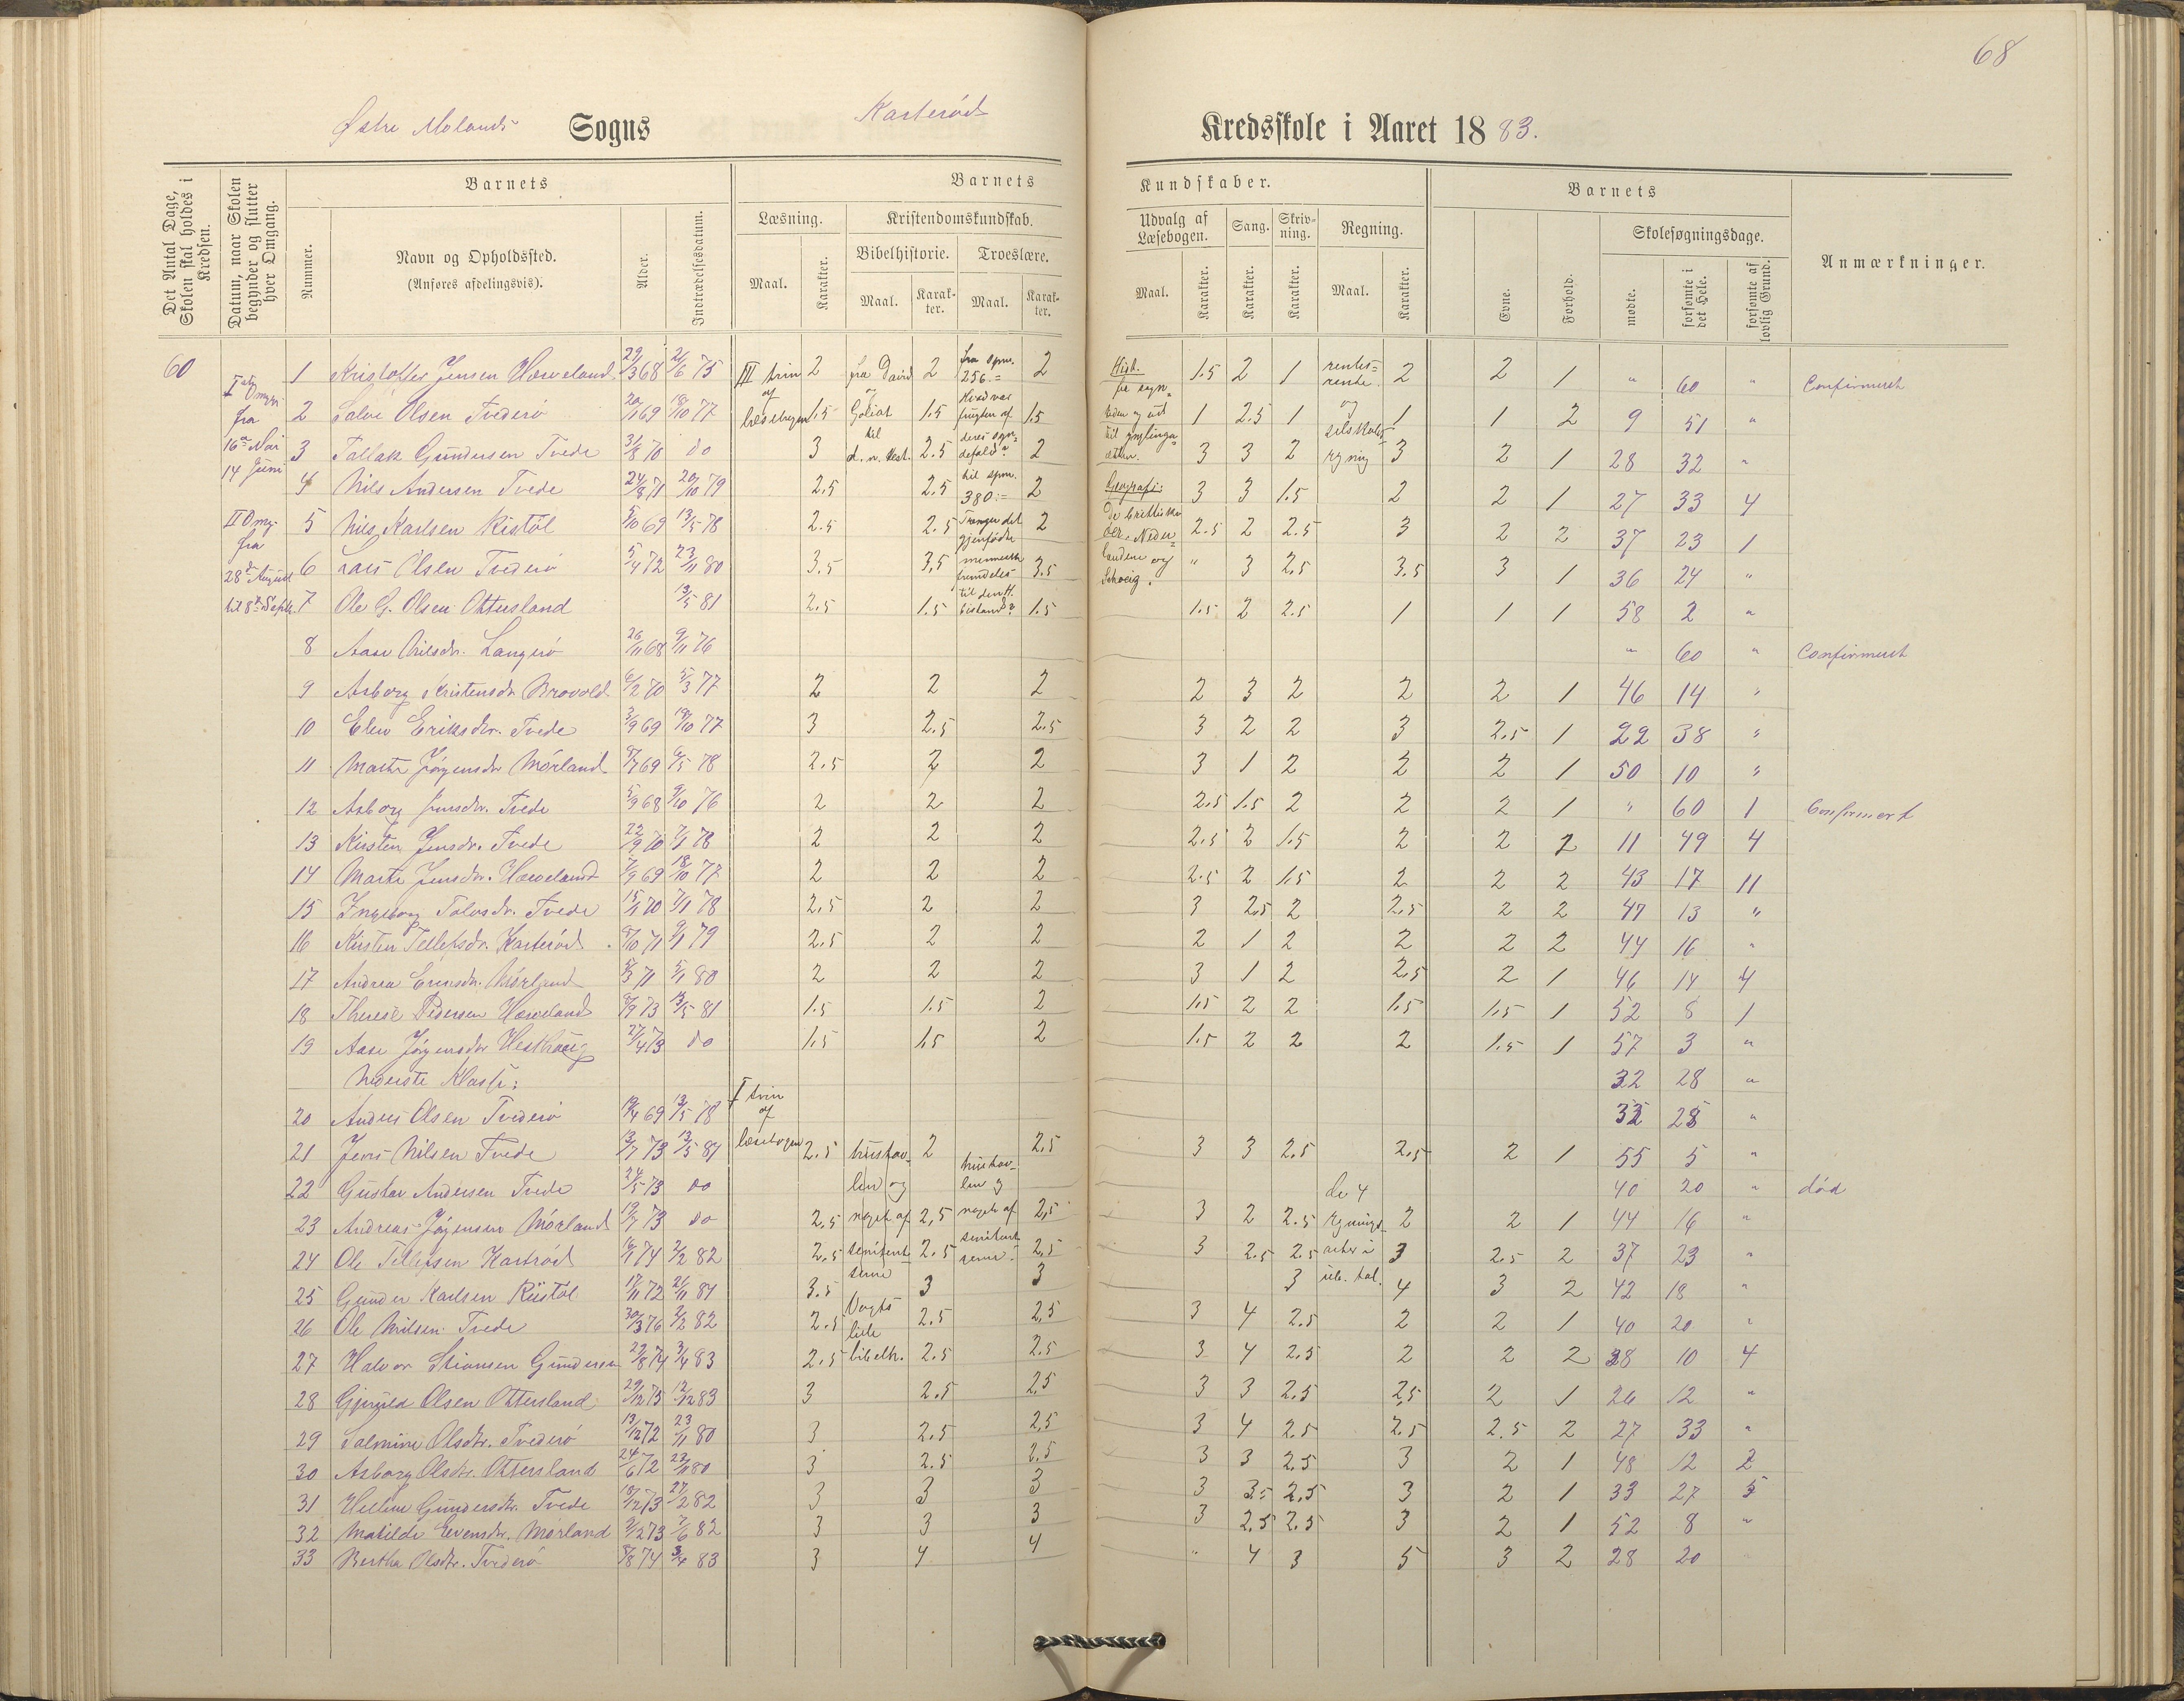 68
Østre Molands Sogns Karterød Kredsskole i Aaret 1883.
Det Antal Dage, Skolen skal holdes i Kredsen.
Datum, naar Skolen begynder og slutter hver Omgang.
Barnets
Nummer.
Navn og Opholdssted.
(Anføres afdelingsvis).
Alder.
Indtrædelsesdatum.
Barnets Kundskaber.
Læsning.
Maal.
Karakter.
Kristendomskundskab.
Bibelhistorie.
Maal.
Karakter.
Troeslære.
Maal.
Karakter.
Udvalg af Læsebogen.
Maal.
Karakter.
Sang.
Karakter.
Skrivning.
Karakter.
Regning.
Maal.
Karakter.
Barnets
Evne.
Forhold.
Skolesøgningsdage.
mødte.
forsømte i det Hele.
forsømte af lovlig Grund.
Anmærkninger.
60
fra
14 Juni
II Omg.
fra
28de August
III trin af læsebogen
fra David og Goliat til
fra spm. 256.=
til spm. 380:=
Hist.
Geografi:
rentes=rente og
1 Kristoffer Jensen Hæveland 29/3 68 21/6 75 2 2 2 1.5 2 1 2 2 1 " 60 " Confirmeret
2 Salve Olsen Tvederø 20/11 69 18/10 77 1.5 1.5 1.5 1 2.5 1 1 1 2 9 51 "
3 Tallak Gundersen Tvede 31/8 70 do 3 2.5 2 3 3 2 3 2 1 28 32 "
4 Nils Andersen Tvede 24/8 71 20/10 79 2.5 2.5 2 3 3 1.5 2 2 1 27 33 4
5 Nils Karlsen Ristøl 5/10 69 13/5 78 2.5 2.5 2 2.5 2 2.5 3 2 2 37 23 1
6 Lars Olsen Tvederø 5/4 72 23/11 80 3.5 3.5 3.5 " 3 2.5 3.5 3 1 36 24 "
7 Ole G. Olsen Ottersland 13/5 81 2.5 1.5 1.5 1.5 2 2.5 1 1 1 58 2 "
8 Aase Nilsdr. Langerø 26/11 68 9/11 76 " 60 " Confirmeret
9 Asborg Kristensdr Brovold 6/2 70 5/3 77 2 2 2 2 3 2 2 2 1 46 14 "
10 Elen Eriksdtr. Tvede 3/9 69 19/10 77 3 2.5 2.5 3 2 2 3 2.5 1 22 38 "
11 Marte Jørgensdr Mørland 8/7 69 6/5 78 2.5 2 2 3 1 2 2 2 1 50 10 "
12 Asborg Jensdtr. Tvede 5/9 68 9/10 76 2 2 2 2.5 1.5 2 2 2 1 " 60 1 Confirmert
13 Kirsten Jensdr. Tvede 22/9 70 7/1 78 2 2 2 2.5 2 1.5 2 2 2 11 49 4
14 Marte Jensdr. Hæveland 7/9 69 18/10 77 2 2 2 2.5 2 1.5 2 2 2 43 17 11
15 Ingeborg Talosdr. Tvede 15/1 70 7/1 78 2.5 2 2 3 2.5 2 2.5 2 2 47 13 "
16 Kirsten Tellefsdr. Karterød 8/10 71 9/1 79 2.5 2 2 2 1 2 2 2 2 44 16 "
17 Andrea Evensdr. Mørland 5/3 71 5/1 80 2 2 2 3 1 2 2.5 2 1 46 14 4
18 Therese Pedersen Hæveland 8/9 73 13/5 81 1.5 1.5 2 1.5 2 2 1.5 1.5 1 52 8 1
19 Aase Jørgensdr Hesthaug 27/4 73 do 1.5 1.5 2 1.5 2 2 2 1.5 1 57 3 "
Nederste Klasse: 32 28 "
I trin af læsebogen
20 Anders Olsen Tvederø 19/4 69 13/5 78 32 28 "
21 Jens Nilsen Tvede 13/7 73 13/5 81 2.5 2 2.5 3 3 2.5 2.5 2 1 55 5 "
22 Gustav Andersen Tvede 24/5 73 do 40 20 " død
23 Andreas Jørgensen Mørland 19/7 73 do 2.5 2,5 2,5 3 2 2.5 2 2 1 44 16 "
24 Ole Tellefsen Karterød 16/1 74 2/2 82 2.5 2.5 2,5 3 2.5 2.5 3 2.5 2 37 23 "
25 Gunder Karlsen Ristøl 17/11 72 21/11 81 3.5 3 3 3 4 3 2 42 18 "
26 Ole Nilsen Tvede 30/3 76 2/2 82 2.5 2.5 2,5 3 4 2.5 2 2 1 40 20 "
27 Halvor Stiansen Gundersen 29/8 74 3/4 83 2.5 2.5 2.5 3 4 2.5 2 2 2 28 10 4
28 Gjeruld Olsen Ottersland 29/12 75 12/12 83 3 2.5 2,5 3 3 2.5 2,5 2 1 26 12 "
29 Salmine Olsdtr. Tvederø 13/12 72 23/11 80 3 2.5 2,5 3 4 2.5 2.5 2.5 2 27 33 "
30 Asborg Olsdtr. Ottersland 24/6 72 23/11 80 3 2.5 2.5 3 3 2.5 3 2 1 48 12 2
31 Helene Gundersdtr. Tvede 18/12 73 27/2 82 3 3 3 3 3.5 2.5 3 2 1 33 27 5
32 Matilde Evensdr. Mørland 2/2 73 7/6 82 3 3 3 3 2.5 2.5 3 2 1 52 8 "
33 Bertha Olsdtr. Tvederø 8/8 74 3/4 83 3 4 4 " 4 3 5 3 2 28 20
huustavlen og noget af
Vogts lille bibelh.
huustavlen og noget af
de 4 regningsarter i